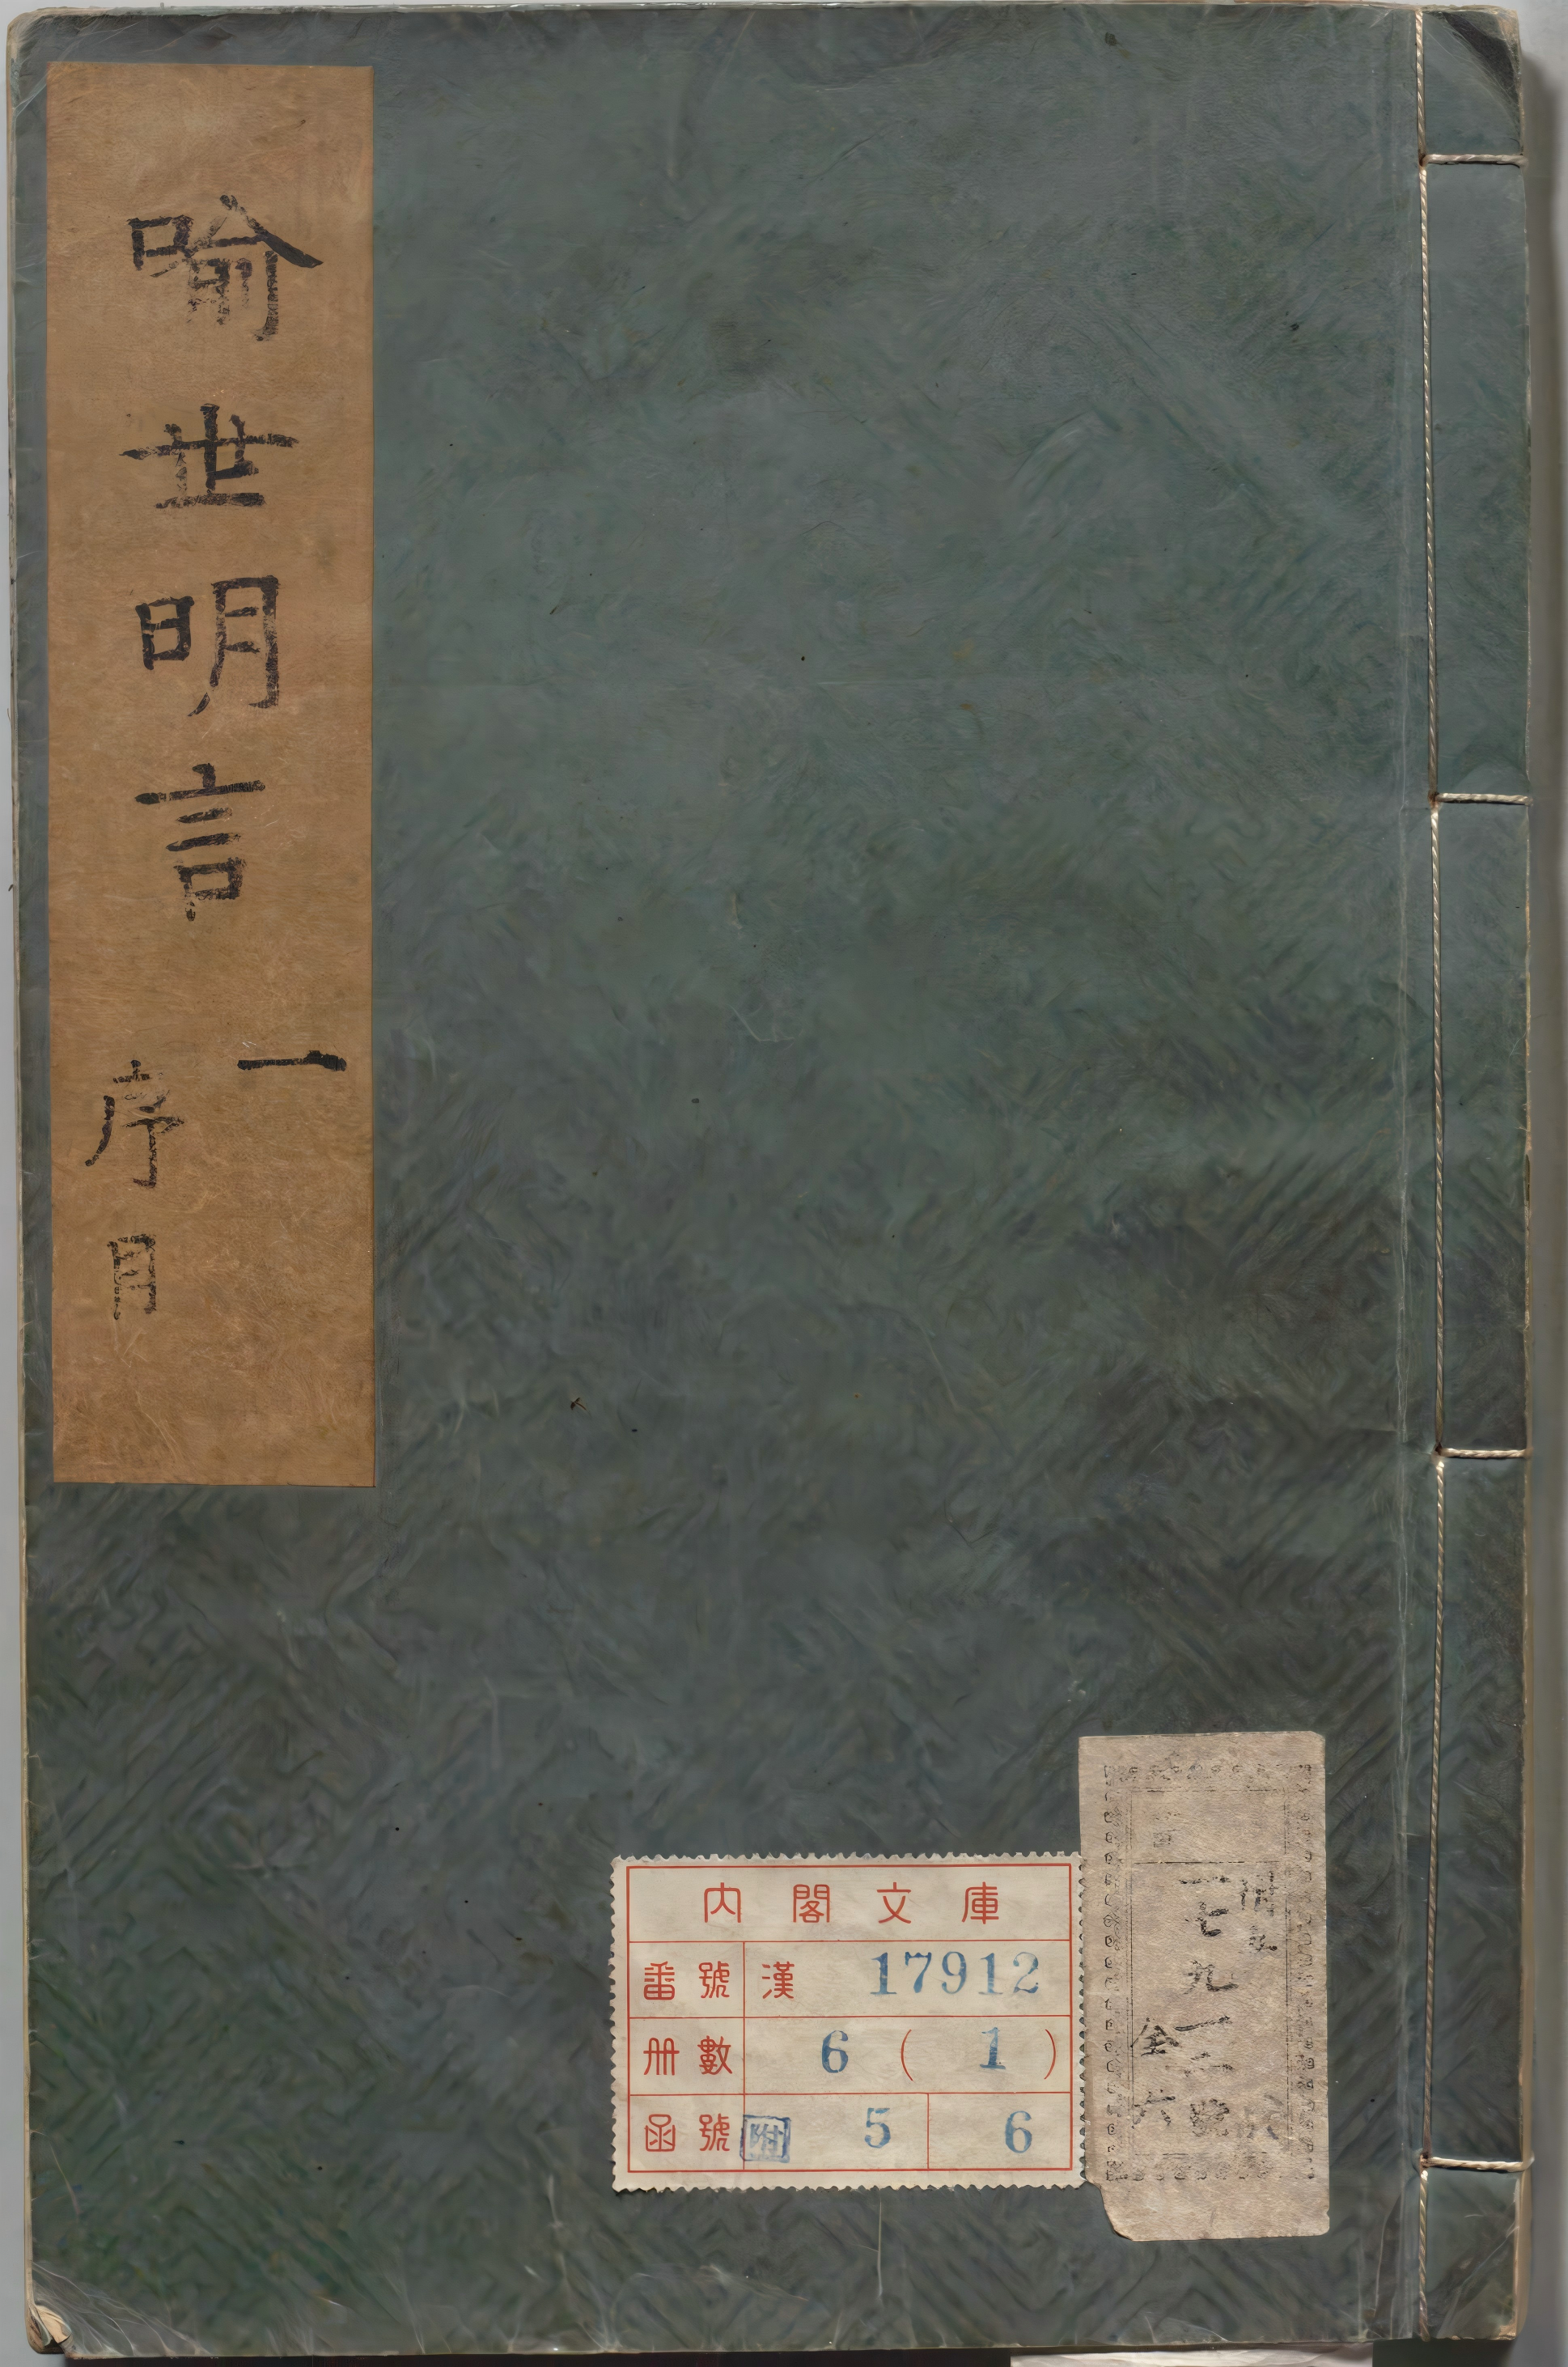 喻世明言
一
序目
內閣文庫
番號 漢 17912
冊數 6 ( 1 )
函號 附 5 6
一七九一二號
全六